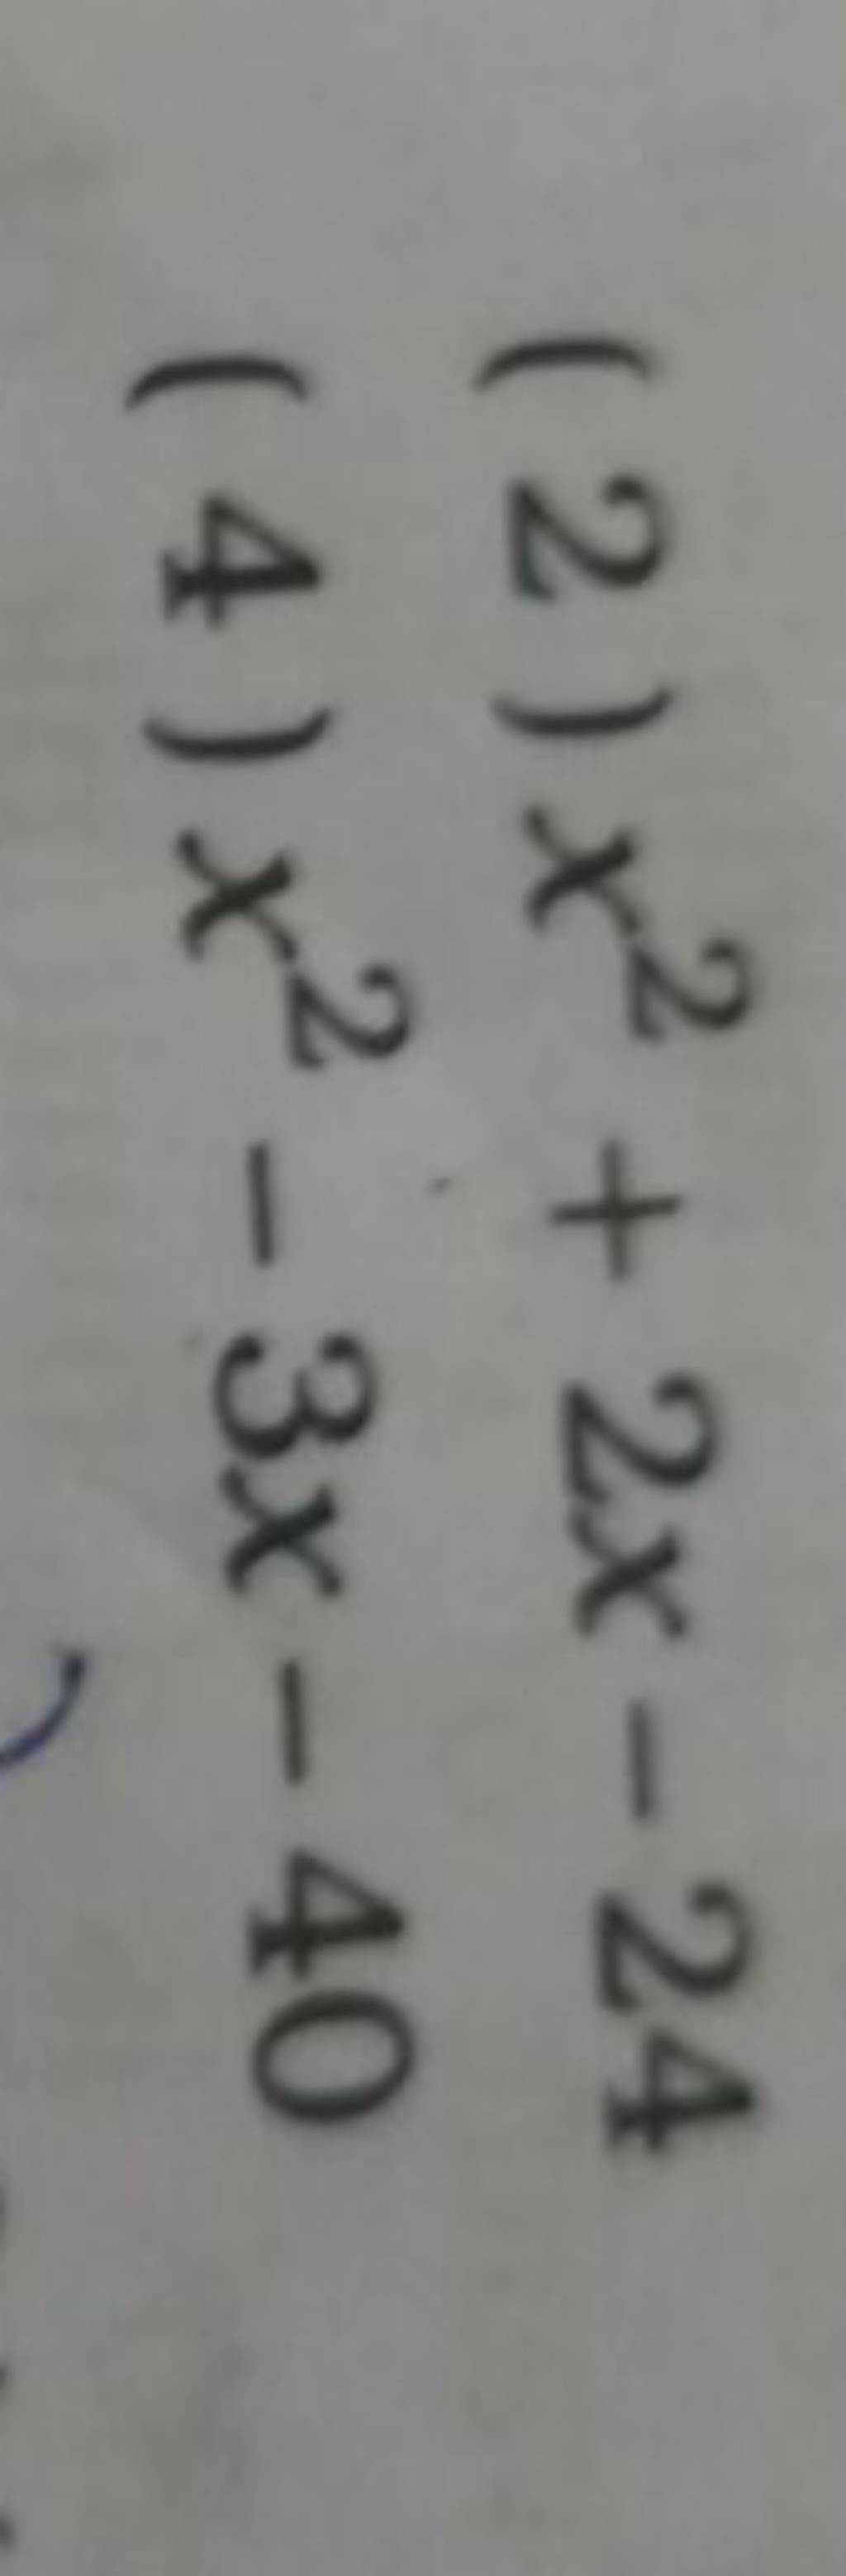 (2) x² + 2x - 24
(4) x² - 3x - 40